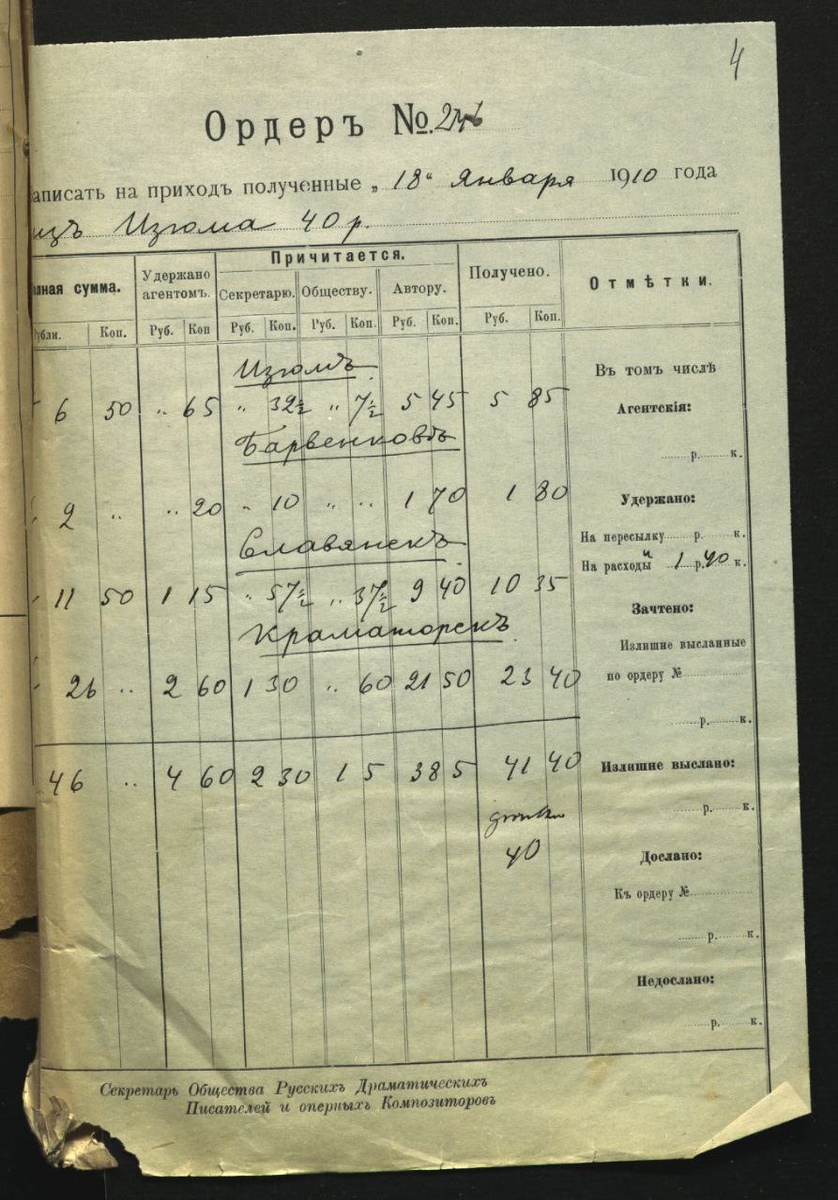 4
Ордеръ №
аписать на приходъ полученные „18“ января 1910 года
изъ Изюма 40 р.
лная сумма. Удержано агентомъ. Причитается. Получено. Отмѣтки.
Секретарю. Обществу. Автору.
Рубли. Коп. Руб. Коп Руб. Коп. Руб. Коп. Руб. Коп. Руб. Коп.
Изюмъ
6 50 „ 65 „ 32½ „ 7½ 5 45 5 85
Барвенковъ
2 „ „ 20 „ 10 „ „ 1 70 1 80
Славянскъ
11 50 1 15 „ 57½ „ 37½ 9 40 10 35
Краматорскъ
26 „ 2 60 1 30 „ 60 21 50 23 40
46 „ 4 60 2 30 1 5 38 5 41 40
40
Въ томъ числѣ
Агентскія:
р. к.
Удержано:
На пересылку р. к.
На расходы 1 р. 40 к.
Зачтено:
Излишне высланные
по ордеру №
р. к.
Излишне выслано:
р. к.
Дослано:
Къ ордеру №
р. к.
Недослано:
р. к.
Секретарь Общества Русскихъ Драматическихъ
Писателей и оперныхъ Композиторовъ